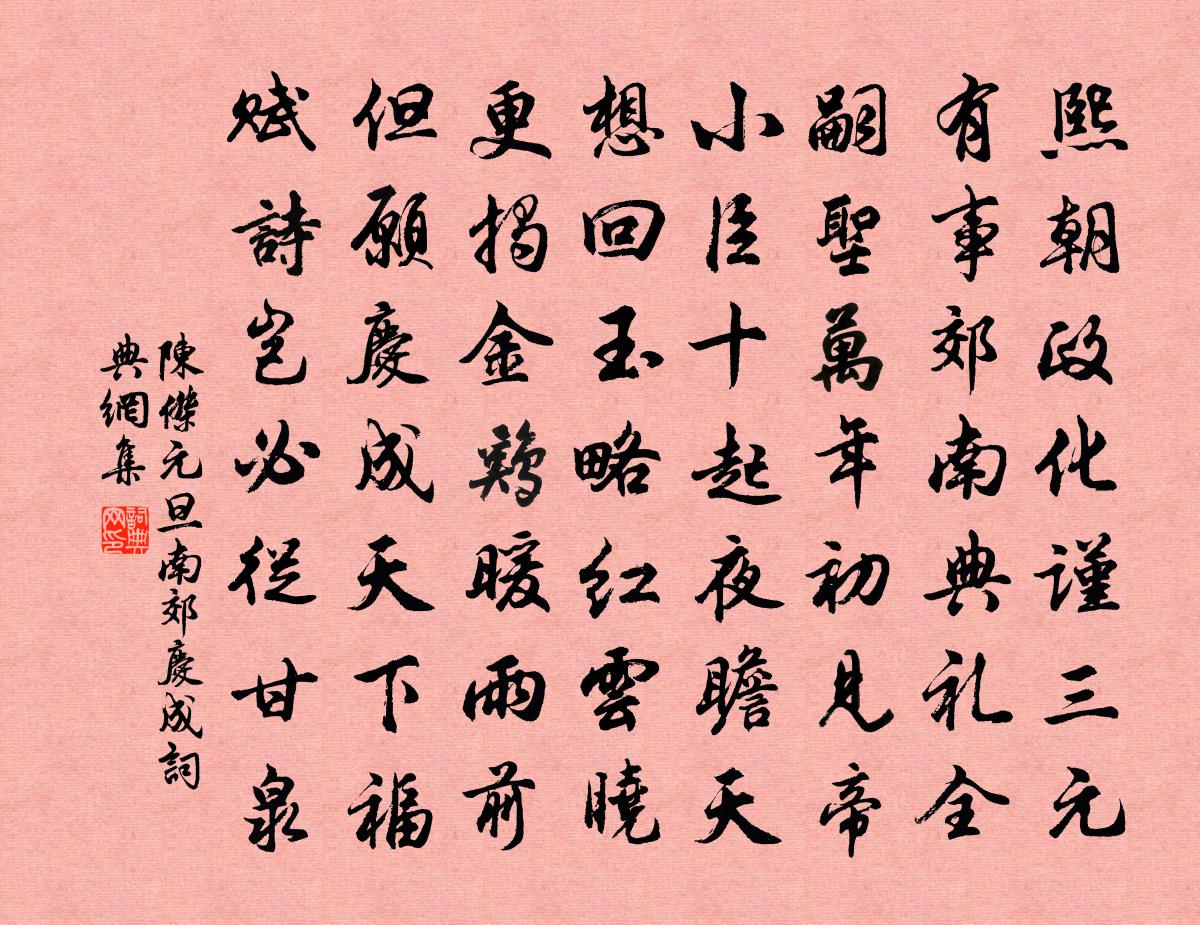 熙朝政化謹三元
有事郊南典礼全
嗣聖萬年初見帝
小臣十起夜瞻天
想回玉略紅雲曉
更揭金鷄暖雨前
但願慶成天下福
賦詩豈必從甘泉
陳傑元旦南郊慶成詞
典網集
詞典網印